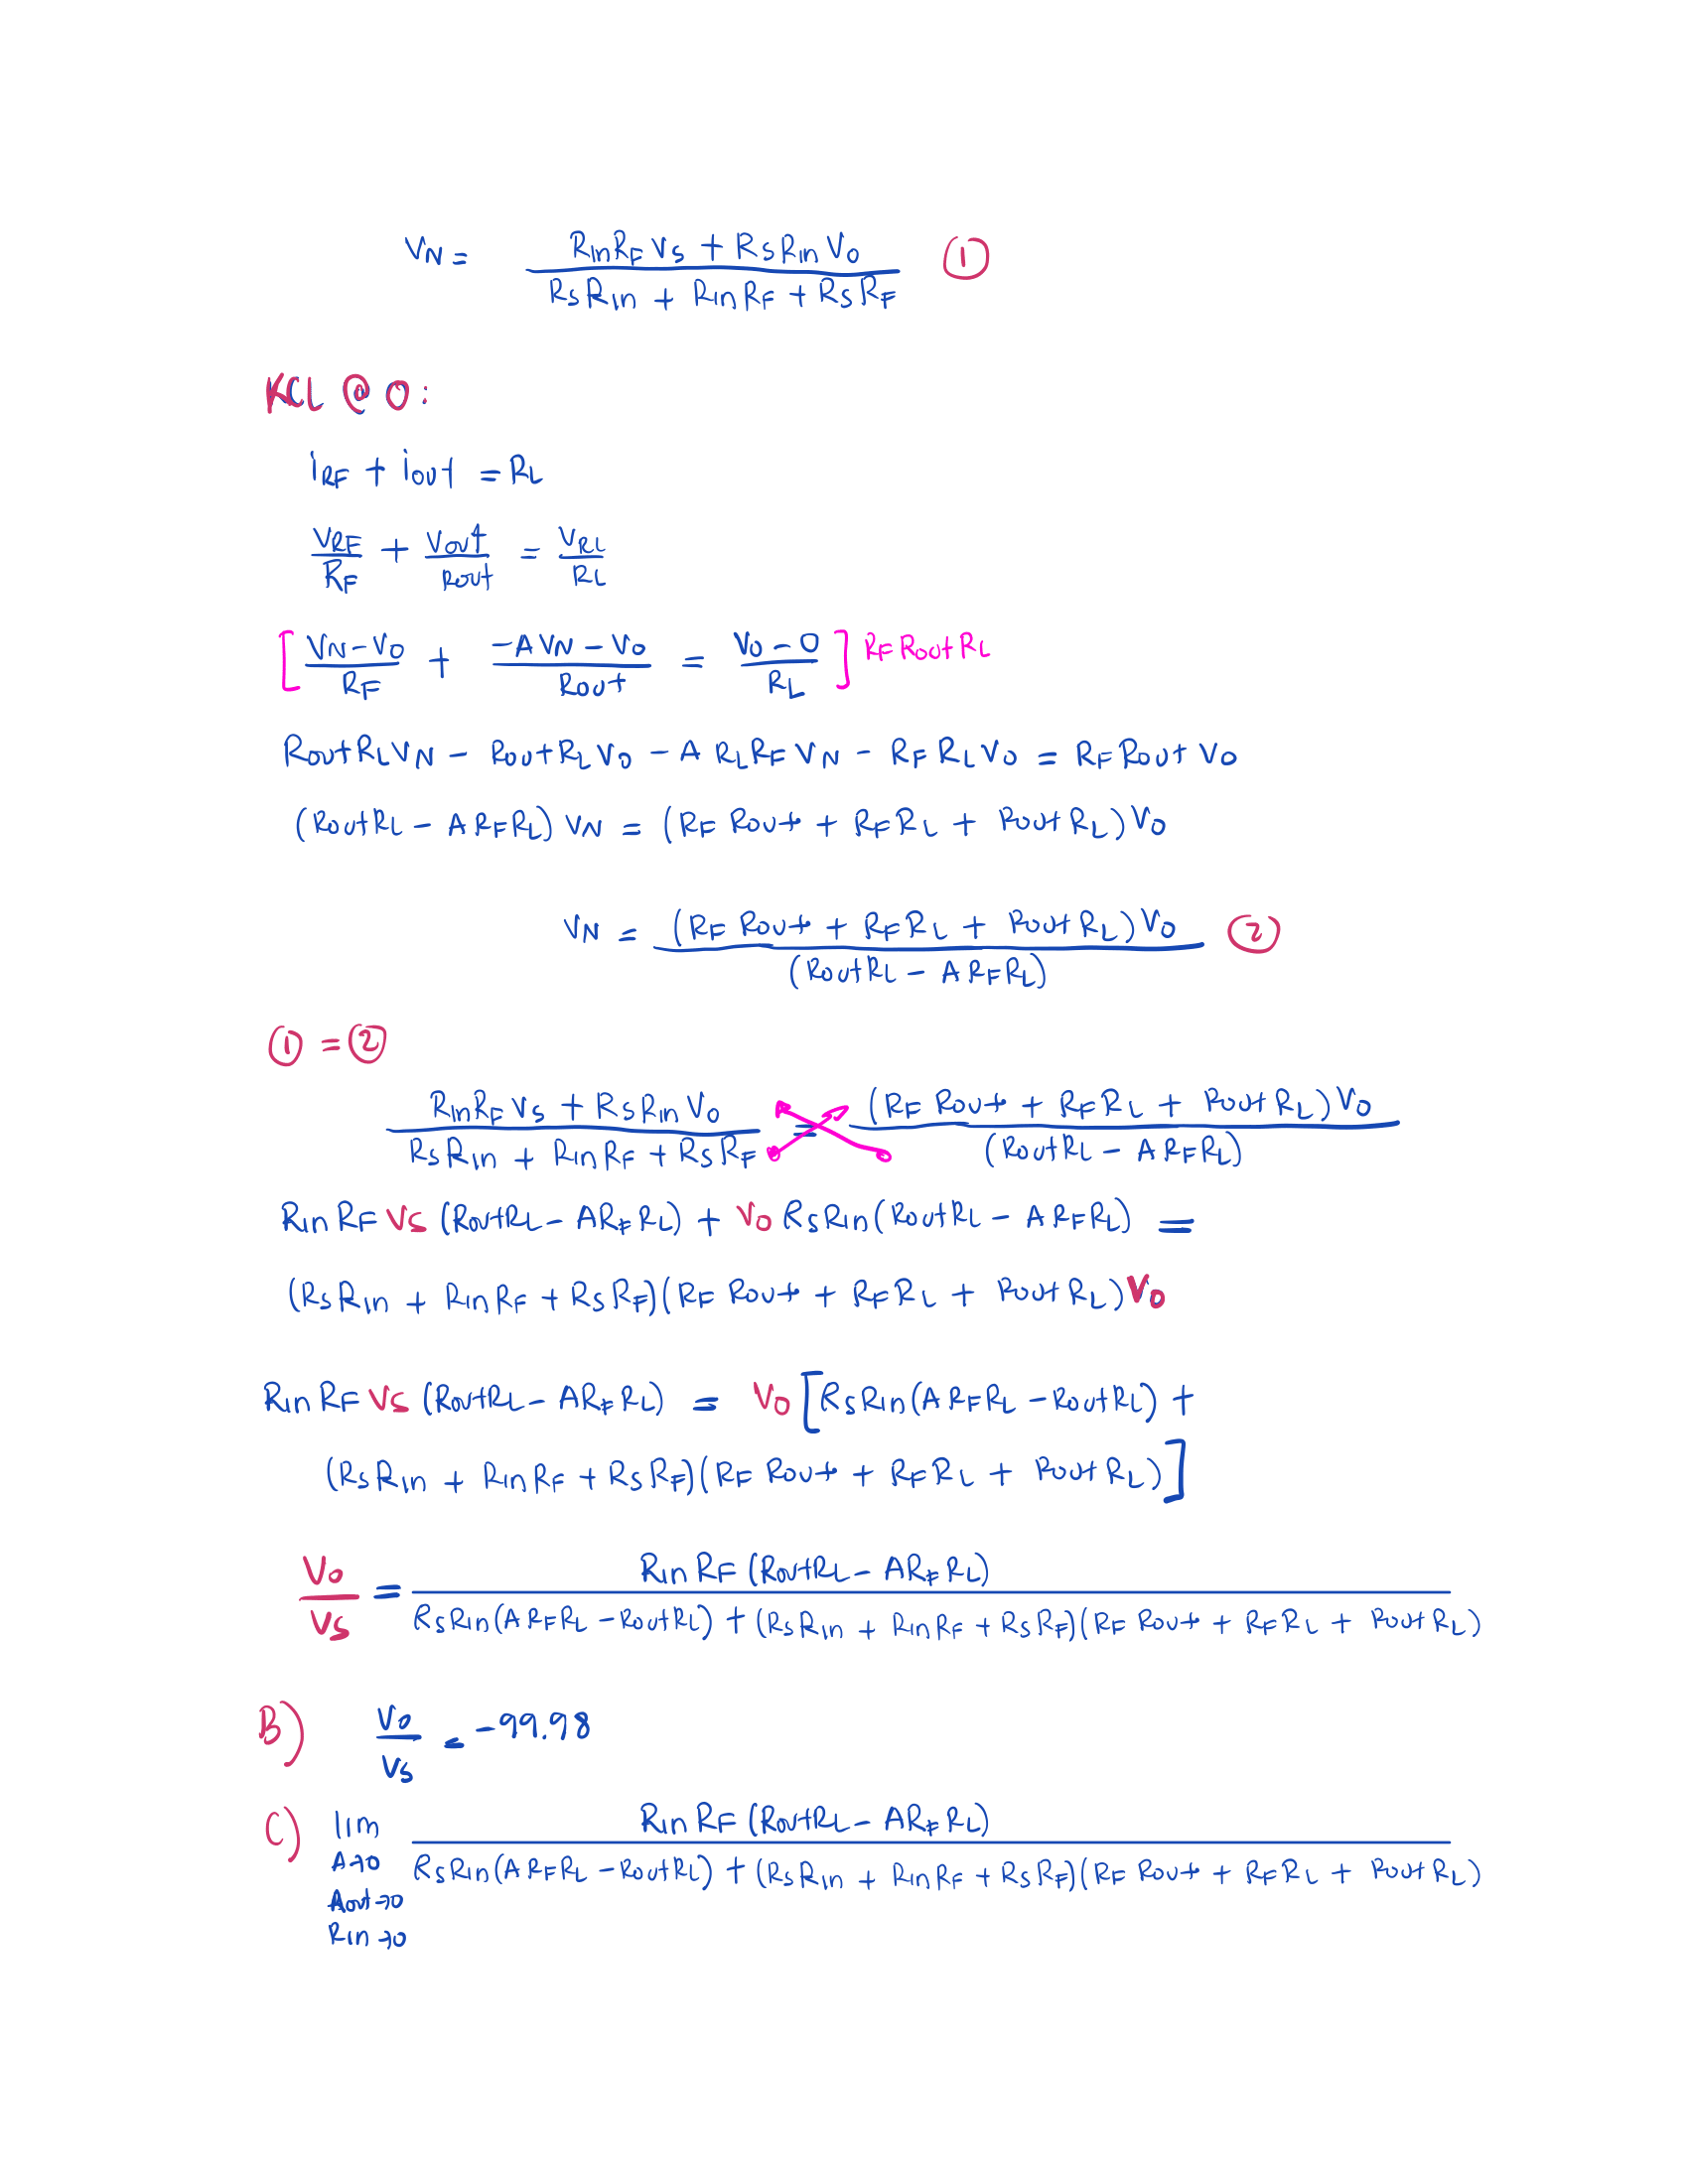 VN = RinRF Vs + RS Rin Vo / RS Rin + Rin RF + RS RF ①
KCL @ O:
iRF + iout = RL
VRF / RF + Vout / Rout = VRL / RL
[ VN - Vo / RF + -A VN - Vo / Rout = Vo - 0 / RL ] RF Rout RL
Rout RL VN - Rout RL Vo - A RL RF VN - RF RL Vo = RF Rout Vo
(Rout RL - A RF RL) VN = (RF Rout + RF RL + Rout RL) Vo
VN = (RF Rout + RF RL + Rout RL) Vo / (Rout RL - A RF RL) ②
① = ②
RinRF Vs + RS Rin Vo / RS Rin + Rin RF + RS RF = (RF Rout + RF RL + Rout RL) Vo / (Rout RL - A RF RL)
Rin RF Vs (Rout RL - A RF RL) + Vo RS Rin (Rout RL - A RF RL) =
(RS Rin + Rin RF + RS RF)(RF Rout + RF RL + Rout RL) Vo
Rin RF Vs (Rout RL - A RF RL) = Vo [ RS Rin (A RF RL - Rout RL) +
(RS Rin + Rin RF + RS RF)(RF Rout + RF RL + Rout RL) ]
Vo / Vs = Rin RF (Rout RL - A RF RL) / RS Rin (A RF RL - Rout RL) + (RS Rin + Rin RF + RS RF)(RF Rout + RF RL + Rout RL)
B) Vo / Vs = -99.98
C) lim A→0 Aout→0 Rin→0 Rin RF (Rout RL - A RF RL) / RS Rin (A RF RL - Rout RL) + (RS Rin + Rin RF + RS RF)(RF Rout + RF RL + Rout RL)